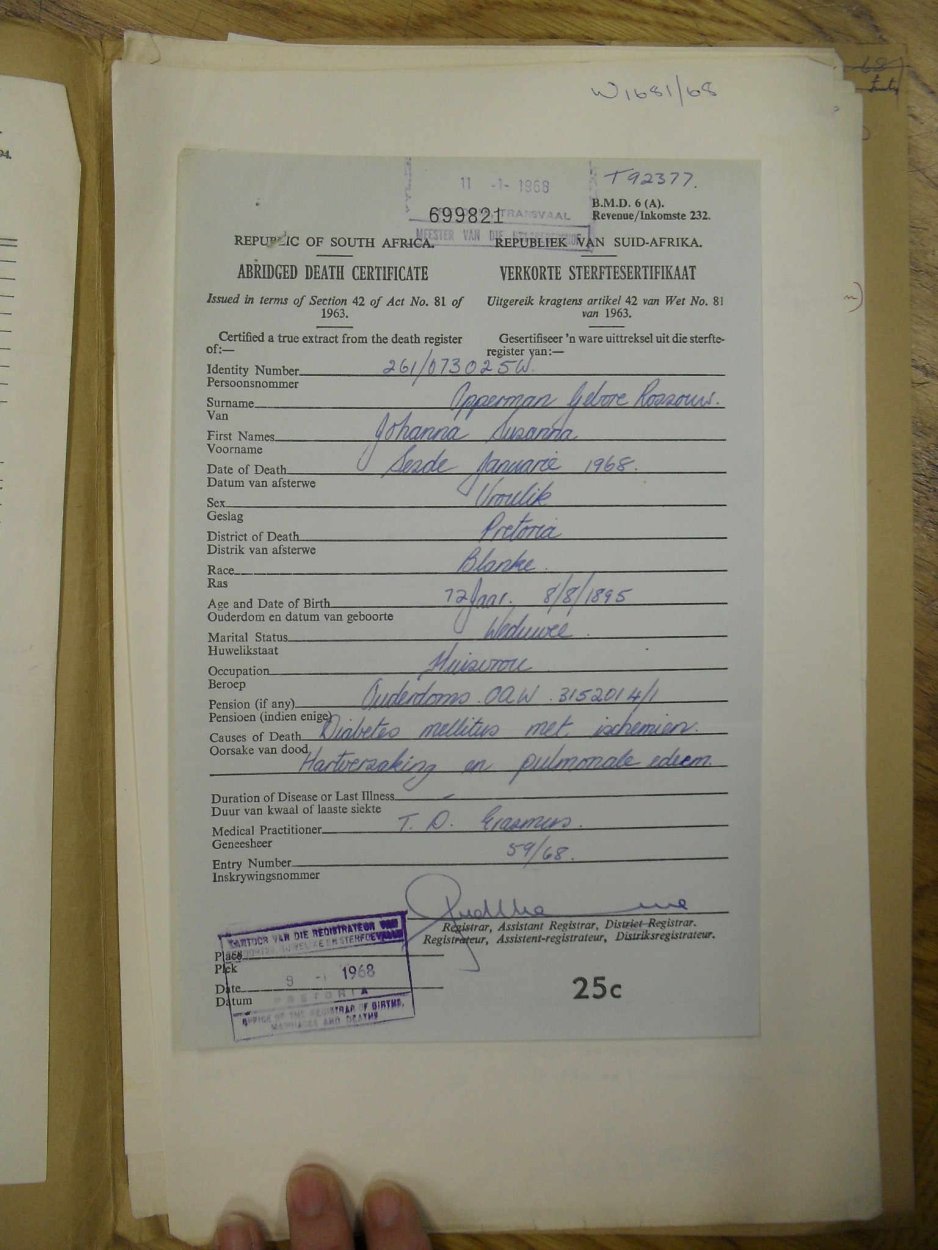 W1681/68
11 -1- 1968
T92377.
699821
TRANSVAAL
B.M.D. 6 (A).
Revenue/Inkomste 232.
MEESTER VAN DIE
REPUBLIC OF SOUTH AFRICA.
REPUBLIEK VAN SUID-AFRIKA.
ABRIDGED DEATH CERTIFICATE
VERKORTE STERFTESERTIFIKAAT
Issued in terms of Section 42 of Act No. 81 of
1963.
Uitgereik kragtens artikel 42 van Wet No. 81
van 1963.
Certified a true extract from the death register
of:—
Gesertifiseer 'n ware uittreksel uit die sterfte-
register van:—
Identity Number 261/073025W.
Persoonsnommer
Surname Opperman Gebore Rossouw.
Van
First Names Johanna Susanna.
Voorname
Date of Death Sesde Januarie 1968.
Datum van afsterwe
Sex Vroulik
Geslag
District of Death Pretoria
Distrik van afsterwe
Race Blanke.
Ras
Age and Date of Birth 72 Jaar. 8/8/1895
Ouderdom en datum van geboorte
Marital Status Weduwee.
Huwelikstaat
Occupation Huisvrou
Beroep
Pension (if any) Ouderdoms. OAW. 3152014/1
Pensioen (indien enige)
Causes of Death Diabetes mellitus met ischemien.
Oorsake van dood
Hartversaking en pulmonale edeem
Duration of Disease or Last Illness –
Duur van kwaal of laaste siekte
Medical Practitioner T. D. Erasmus.
Geneesheer
Entry Number 59/68.
Inskrywingsnommer
Registrar, Assistant Registrar, District Registrar.
Registrateur, Assistent-registrateur, Distriksregistrateur.
KANTOOR VAN DIE REGISTRATEUR VAN
Place
Plek
Date 9 -1 1968
Datum
PRETORIA
OFFICE OF THE REGISTRAR OF BIRTHS,
MARRIAGES AND DEATHS
25c